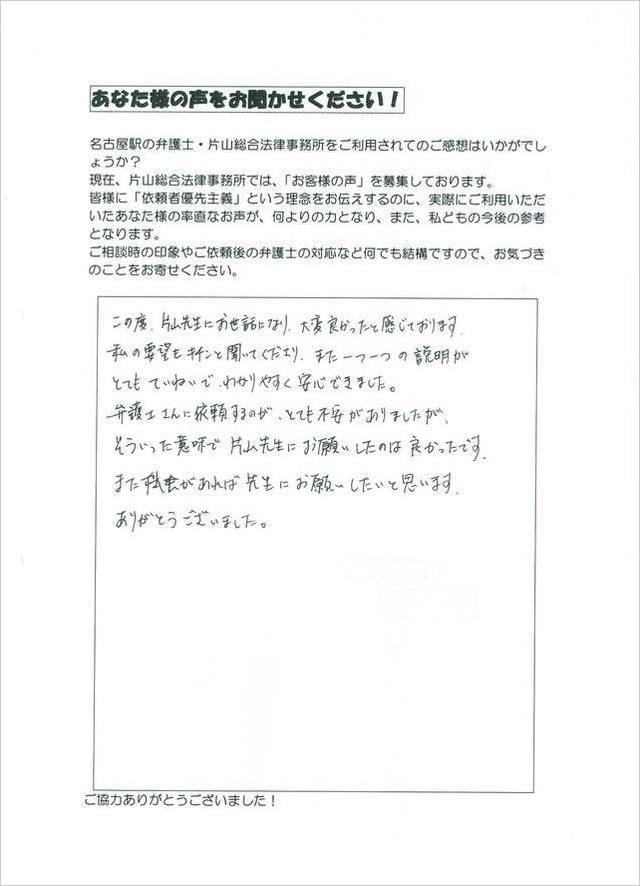 あなた様の声をお聞かせください！
名古屋駅の弁護士・片山総合法律事務所をご利用されてのご感想はいかがでし
ょうか？
現在、片山総合法律事務所では、「お客様の声」を募集しております。
皆様に「依頼者優先主義」という理念をお伝えするのに、実際にご利用いただ
いたあなた様の率直なお声が、何よりの力となり、また、私どもの今後の参考
となります。
ご相談時の印象やご依頼後の弁護士の対応など何でも結構ですので、お気づき
のことをお寄せください。
この度、片山先生にお世話になり、大変良かったと感じております。
私の要望をキチンと聞いてくださり、また一つ一つの説明が
とてもていねいで、わかりやすく安心できました。
弁護士さんに依頼するのが、とても不安がありましたが、
そういった意味で片山先生にお願いしたのは良かったです。
また機会があれば先生にお願いしたいと思います。
ありがとうございました。
ご協力ありがとうございました！